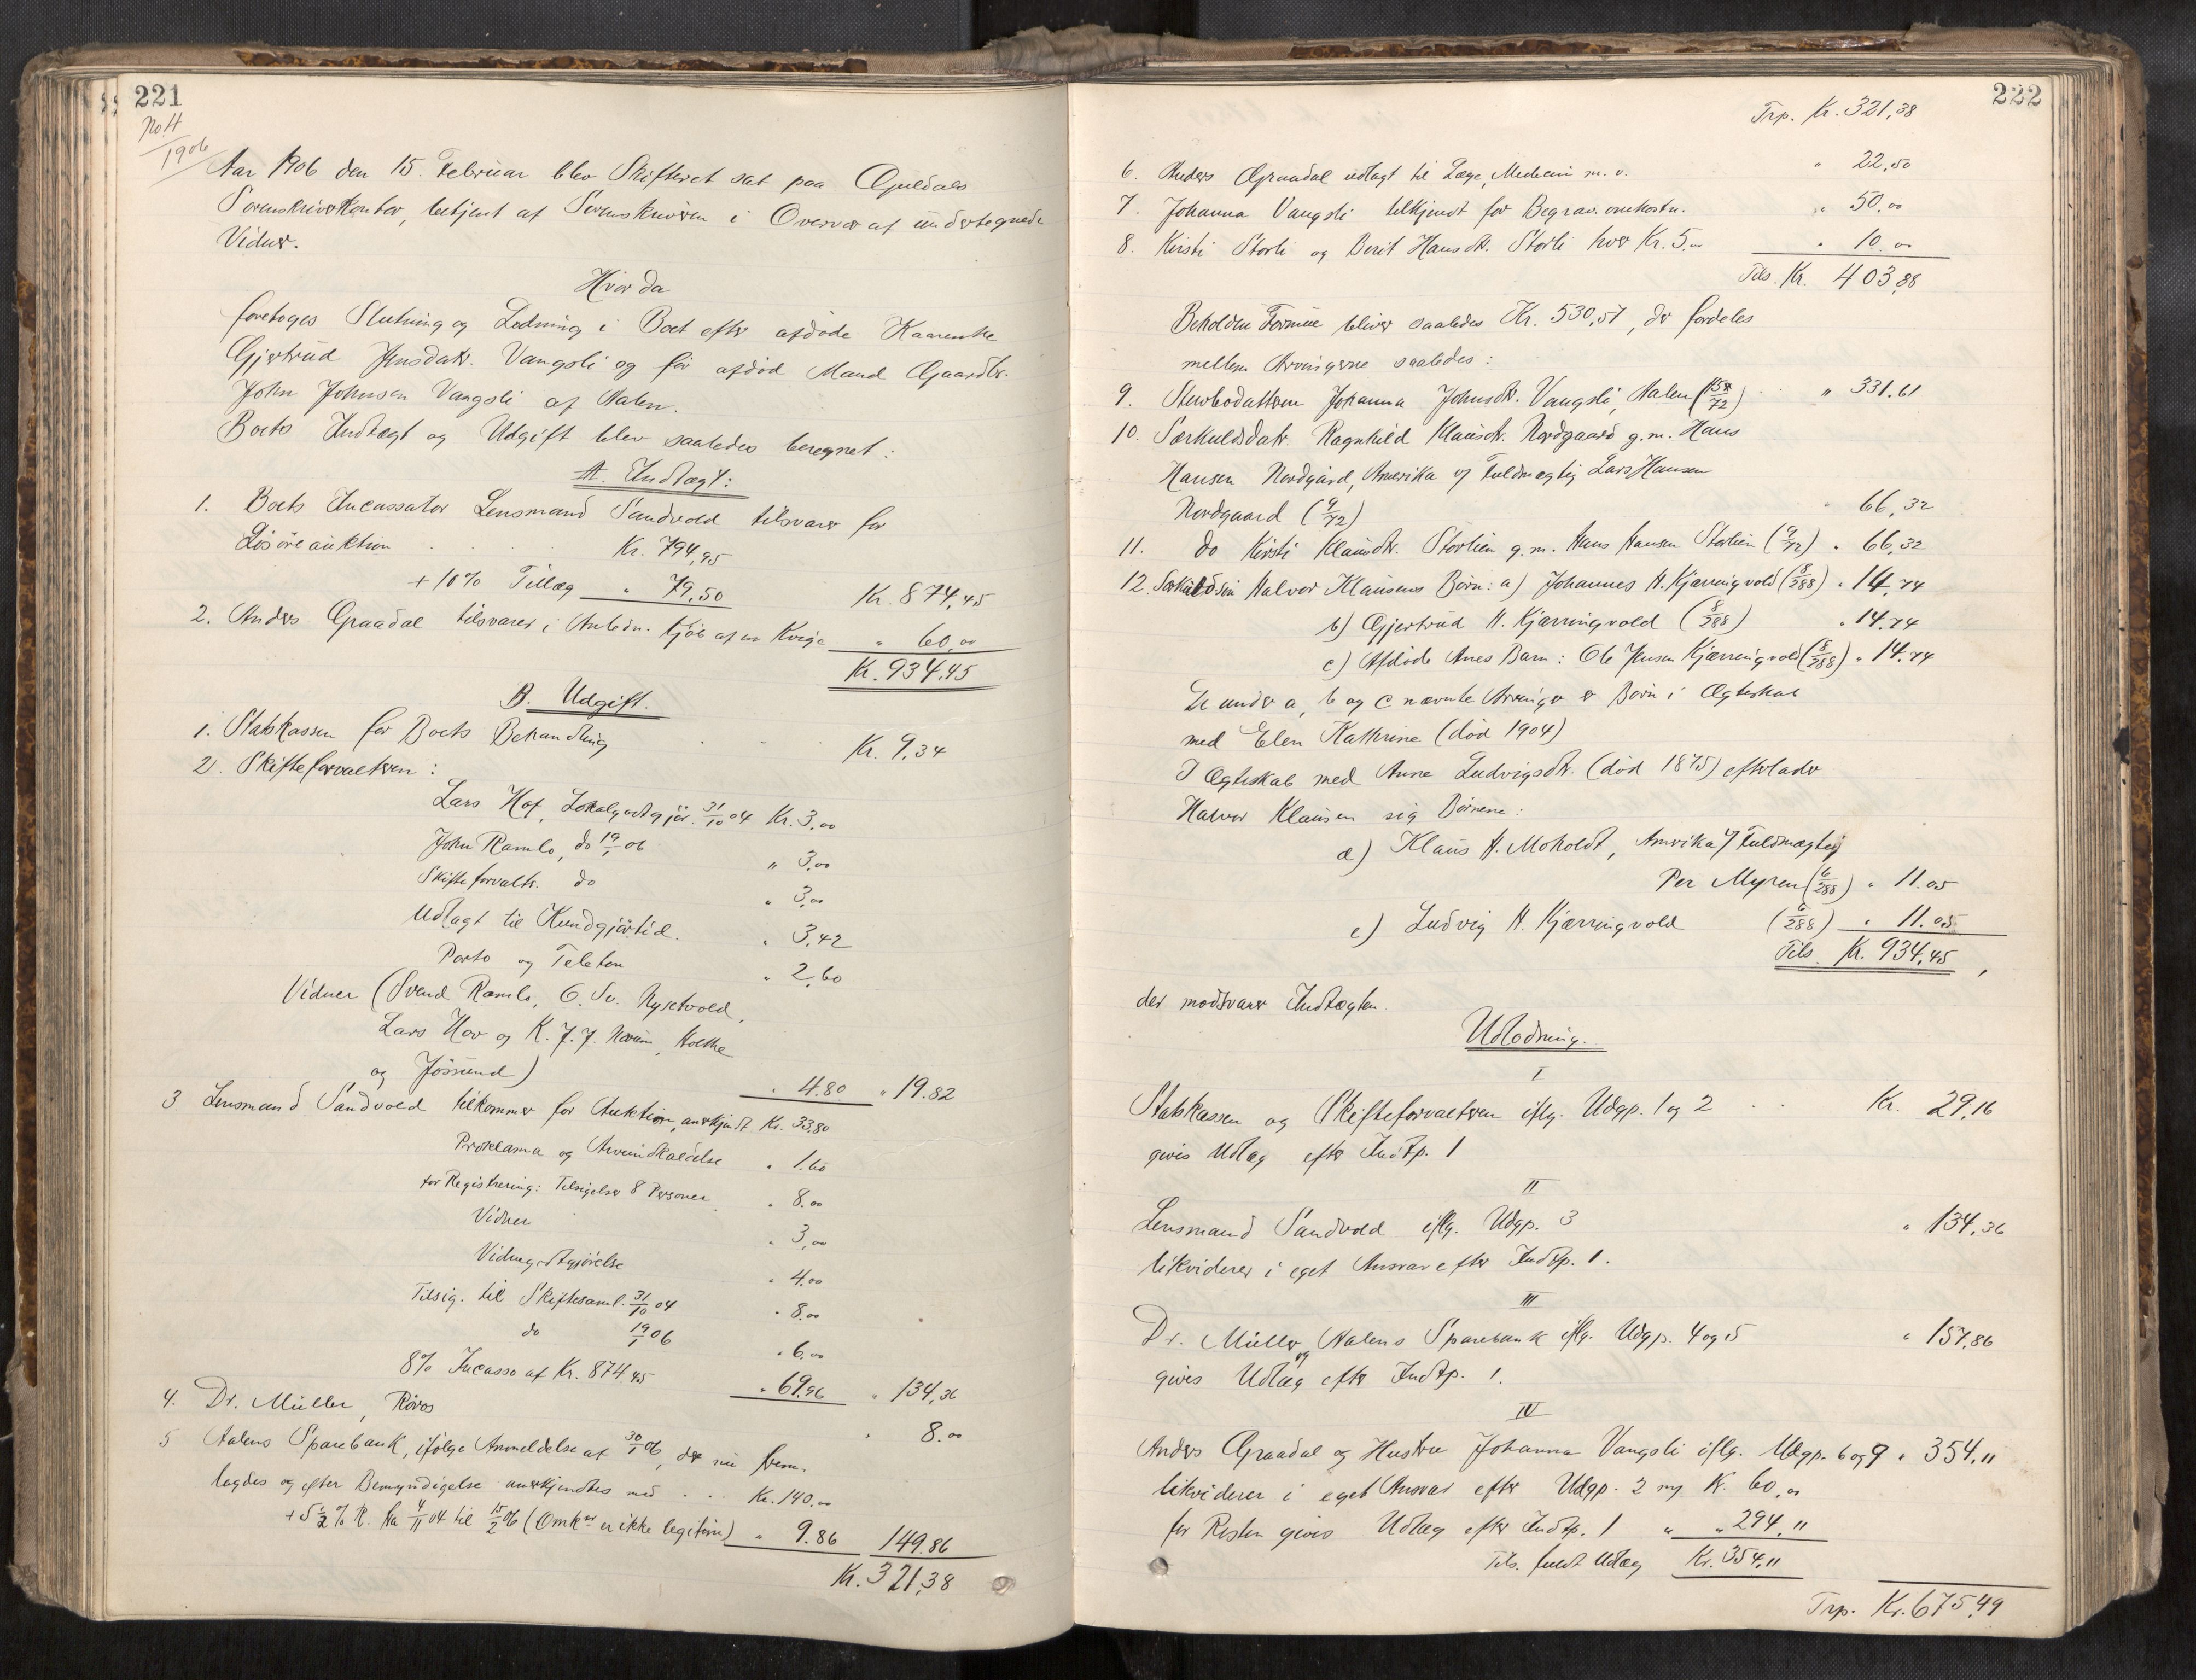 221
No. 4
1906
Aar 1906 den 15. Februar blev Skifteret sat paa Guldals
Sorenskriverkontor, betjent af Sorenskriveren i Overvær af undertegnede
Vidner.
Hvorda
foretoges Slutning og Lodning i Boet efter afdøde Karenthe
Gjertrud Jensdatr. Vangsli og før afdød Mand Gaardbr.
John Johnsen Vangsli af Aalen.
Boets Indtægt og Udgift blev saaledes beregnet:
A. Indtægt:
1. Boets Incassator Lensmand Sandvold tilsvarer for
Løsøreauktion . . . Kr. 794,95
+ 10% Tillæg " 79,50 Kr. 874,45
2. Anders Graadal tilsvarer i Anledn. Kjøb af en Kvige " 60,00
Kr. 934,45
B. Udgift.
1. Statskassen for Boets Behandling . . . Kr. 9,34
2. Skifteforvalteren:
Lars Hof, Lokalgodtgjør. 31/10 04 Kr. 3,00
John Ramlo, do 19/1 06 " 3,00
Skifteforvaltr. do " 3,00
Udlagt til Kundgjør.tid. " 3,42
Porto og Telefon " 2,60
Vidner (Svend Ramlo, O. Sv. Nysetvold,
Lars Hov og K. J. J. Norum, Holthe
og Jøssund) " 4.80 " 19.82
3 Lensmand Sandvold tilkommer for Auktion, anerkjendt Kr. 33,80
Proklama og Arveindkaldelse " 1.60
for Registrering: Tilsigelse 8 Personer " 8.00
Vidner " 3,00
Vidnegodtgjørelse " 4.00
Tilsig. til Skiftesaml. 31/10 04 " 8.00
do 19/1 06 " 6.00
8% Incasso af Kr. 874.45 " 69.96 " 134,36
4. Dr. Müller, Røros " 8.00
5 Aalens Sparebank, ifølge Anmeldelse af 30/1 06, der nu frem-
lagdes og efter Bemyndigelse anerkjendtes med . . . Kr. 140.00
+ 5½% R. fra 4/11 04 til 15/2 06 (Omk er ikke legitim) " 9.86 149.86
Kr. 321,38
222
Trp. Kr. 321,38
6. Anders Graadal udlagt til Læge, Medicin m. v. " 22,50
7. Johanna Vangsli tilkjendt for Begrav. omkostn. " 50,00
8. Kirsti Storli og Berit Hansdtr. Storli hver Kr. 5.00 " 10.00
Tils. Kr. 403,88
Beholden Formue bliver saaledes Kr. 530,57, der fordeles
mellem Arvingerne saaledes:
9. Stervbodatteren Johanna Johnsdtr. Vangsli, Aalen (45/72) " 331.61
10. Særkuldsdatr. Ragnhild Klausdtr. Nordgaard g.m. Hans
Hansen Nordgård, Amerika v/ Fuldmægtig Lars Hansen
Nordgaard (9/72) " 66,32
11. do Kirsti Klausdtr. Storlien g.m. Hans Hansen Storlien (9/72) " 66,32
12. Særkuldssøn Halvor Klausens Børn: a) Johannes H. Kjærringvold (8/288) " 14,74
b) Gjertrud H. Kjærringvold (8/288) " 14.74
c) Afdøde Anes Barn: Ole Jensen Kjærringvold (8/288) " 14.74
De under a, b og c nævnte Arvinger er Børn i Ægteskab
med Elen Kathrine (død 1904)
I Ægteskab med Anne Ludvigsdtr. (død 1875) efterlader
Halvor Klausen sig Børnene:
d) Klaus H. Moholdt, Amerika v/ Fuldmægtig
Per Myren (6/288) " 11.05
e) Ludvig H. Kjærringvold (6/288) " 11.05
Tils. Kr. 934,45,
der modsvarer Indtægten.
Udlodning.
I
Statskassen og Skifteforvalteren iflg. Udgp. 1 og 2 . . Kr. 29,16
gives Udlæg efter Indtp. 1
II
Lensmand Sandvold iflg. Udgp. 3 " 134,36
likviderer i eget Ansvar efter Indtp. 1.
III
Dr. Müller og Aalens Sparebank iflg. Udgp. 4 og 5 " 157,86
gives Udlæg efter Indtp. 1.
IV
Anders Graadal og Hustru Johanna Vangsli iflg. Udgp. 6 og 9 " 354,11
likviderer i eget Ansvar efter Udgp. 2 m. Kr. 60,00
for Resten gives Udlæg efter Indtp. 1 " " 294,11
Tils. fuldt Udlæg Kr. 354,11
Trp. Kr. 675,49